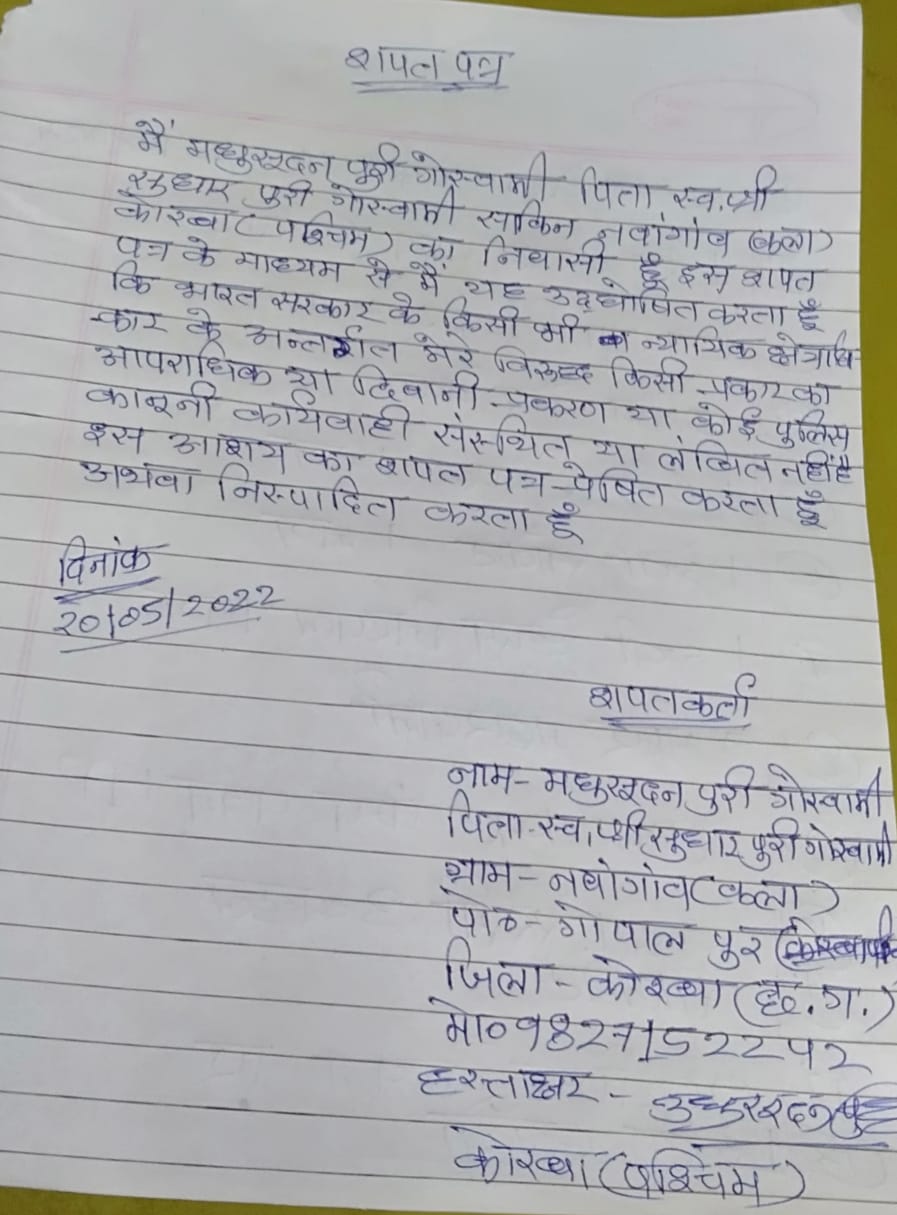 शपत पत्र
मैं मधुसूदन पुरी गोस्वामी पिता स्व. श्री
सुधार पुरी गोस्वामी साकिन नवांगांव (कला)
कोरबा (पश्चिम) का निवासी हूँ इस शपत
पत्र के माध्यम से मैं यह उद्घोषित करता हूँ
कि भारत सरकार के किसी भी न्यायिक क्षेत्राधि
-कार के अन्तर्गत मेरे विरूध्द किसी प्रकार का
आपराधिक या दिवानी प्रकरण या कोई पुलिस
कानूनी कार्यवाही संस्थित या लंबित नहीं है
इस आशय का शपत पत्र प्रेषित करता हूँ
अथवा निस्पादित करता हूँ
दिनांक
20/05/2022
शपतकर्ता
नाम- मधुसूदन पुरी गोस्वामी
पिता- स्व. श्री सुधार पुरी गोस्वामी
ग्राम- नवांगांव (कला)
पो०- गोपाल पुर
जिला- कोरबा (छ.ग.)
मो० 9827152242
हस्ताक्षर-
कोरबा (पश्चिम)